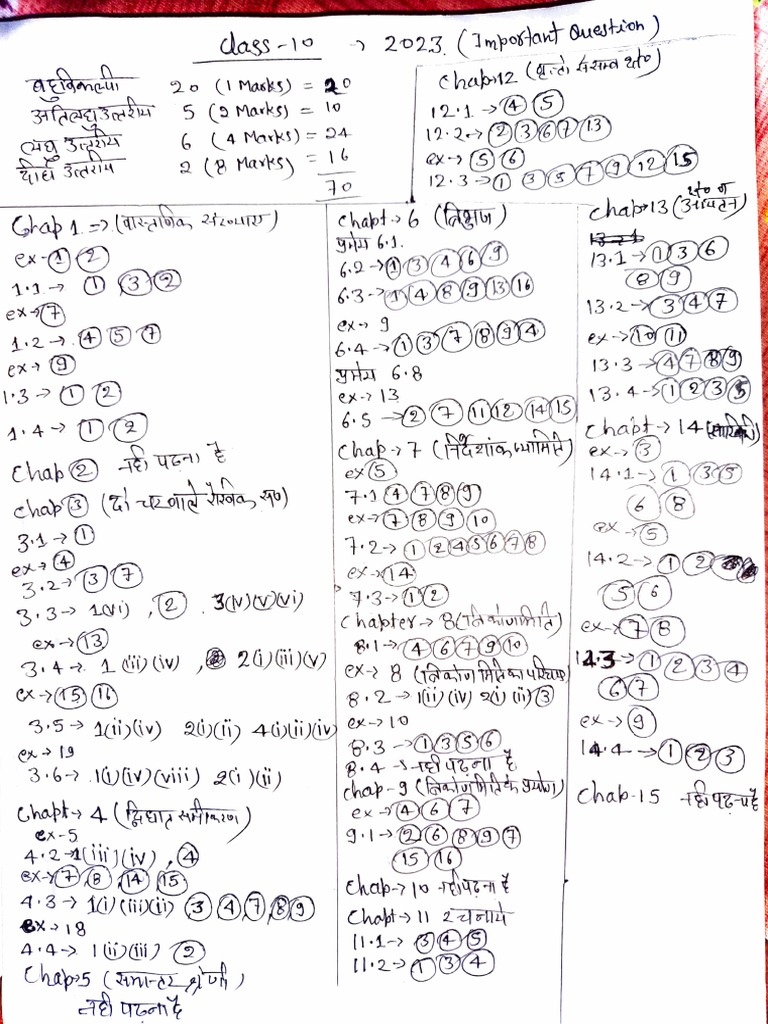 Class-10 → 2023 (Important Question)
बहुविकल्पी 20 (1 Marks) = 20
अतिलघु उत्तरीय 5 (2 Marks) = 10
लघु उत्तरीय 6 (4 Marks) = 24
दीर्घ उत्तरीय 2 (8 Marks) = 16
70
Chap 1 ⇒ (वास्तविक संख्याएं)
ex- 1 2
1.1 → 1 3 2
ex → 7
1.2 → 4 5 7
ex → 9
1.3 → 1 2
1.4 → 1 2
Chap 2 नही पढ़ना है
Chap 3 (दो चर वाले रैखिक समी०)
3.1 → 1
ex → 4
3.2 → 3 7
3.3 → 1(vi) , 2 3(iv)(v)(vi)
ex → 13
3.4 → 1 (ii)(iv) , 2(i)(iii)(v)
ex → 15 16
3.5 → 1(ii)(iv) 2(i)(ii) 4(i)(ii)(iv)
ex → 19
3.6 → 1(i)(iv)(viii) 2(i)(ii)
Chapt → 4 (द्विघात समीकरण)
ex-5
4.2 → 1(iii)(iv) , 4
ex → 7, 8, 14, 15
4.3 → 1(i)(iii)(ii) 3 4, 7, 8 9
ex → 18
4.4 → 1(ii)(iii) 2
Chap → 5 (समान्तर श्रेणी)
नही पढ़ना है
Chapt → 6 (त्रिभुज)
प्रमेय 6.1.
6.2 → 1 3 4 6 9
6.3 → 1 4 8 9 13 16
ex → 9
6.4 → 1 3 7 8 9 4
प्रमेय 6.8
ex → 13
6.5 → 2 7 11 12 14 15
Chap → 7 (निर्देशांक ज्यामिति)
ex 5
7.1 4 7 8 9
ex → 7 8 9 10
7.2 → 1 2 4 5 6 7 8
ex → 14
7.3 → 1 2
Chapter → 8 (त्रिकोणमिति)
8.1 → 4 6 7 9 10
ex → 8 (त्रिकोणमिति का परिचय)
8.2 → 1(ii)(iv) 2(i)(ii) 3
ex → 10
8.3 → 1 3 5 6
8.4 → नही पढ़ना है
Chap-9 (त्रिकोणमिति के प्रयोग)
ex → 4 6 7
9.1 → 2 6 8 9 7
15 16
Chap → 10 नही पढ़ना है
Chapt → 11 रचनाये
11.1 → 3 4 5
11.2 → 1 3 4
Chap 12
12.1 → 4 5
12.2 → 2 3 6 7 13
ex → 5 6
12.3 → 1 3 5 7 9 12 15
Chap → 13 (आयतन)
13.1 → 1 3 6
8 9
13.2 → 3 4 7
ex → 10 11
13.3 → 4 7 8 9
13.4 → 1 2 3 5
Chapt → 14
ex → 3
14.1 → 1 3 5
6 8
ex → 5
14.2 → 1 2
5 6
ex → 7 8
14.3 → 1 2 3 4
6 7
ex → 9
14.4 → 1 2 3
Chap-15 नही पढ़ना है